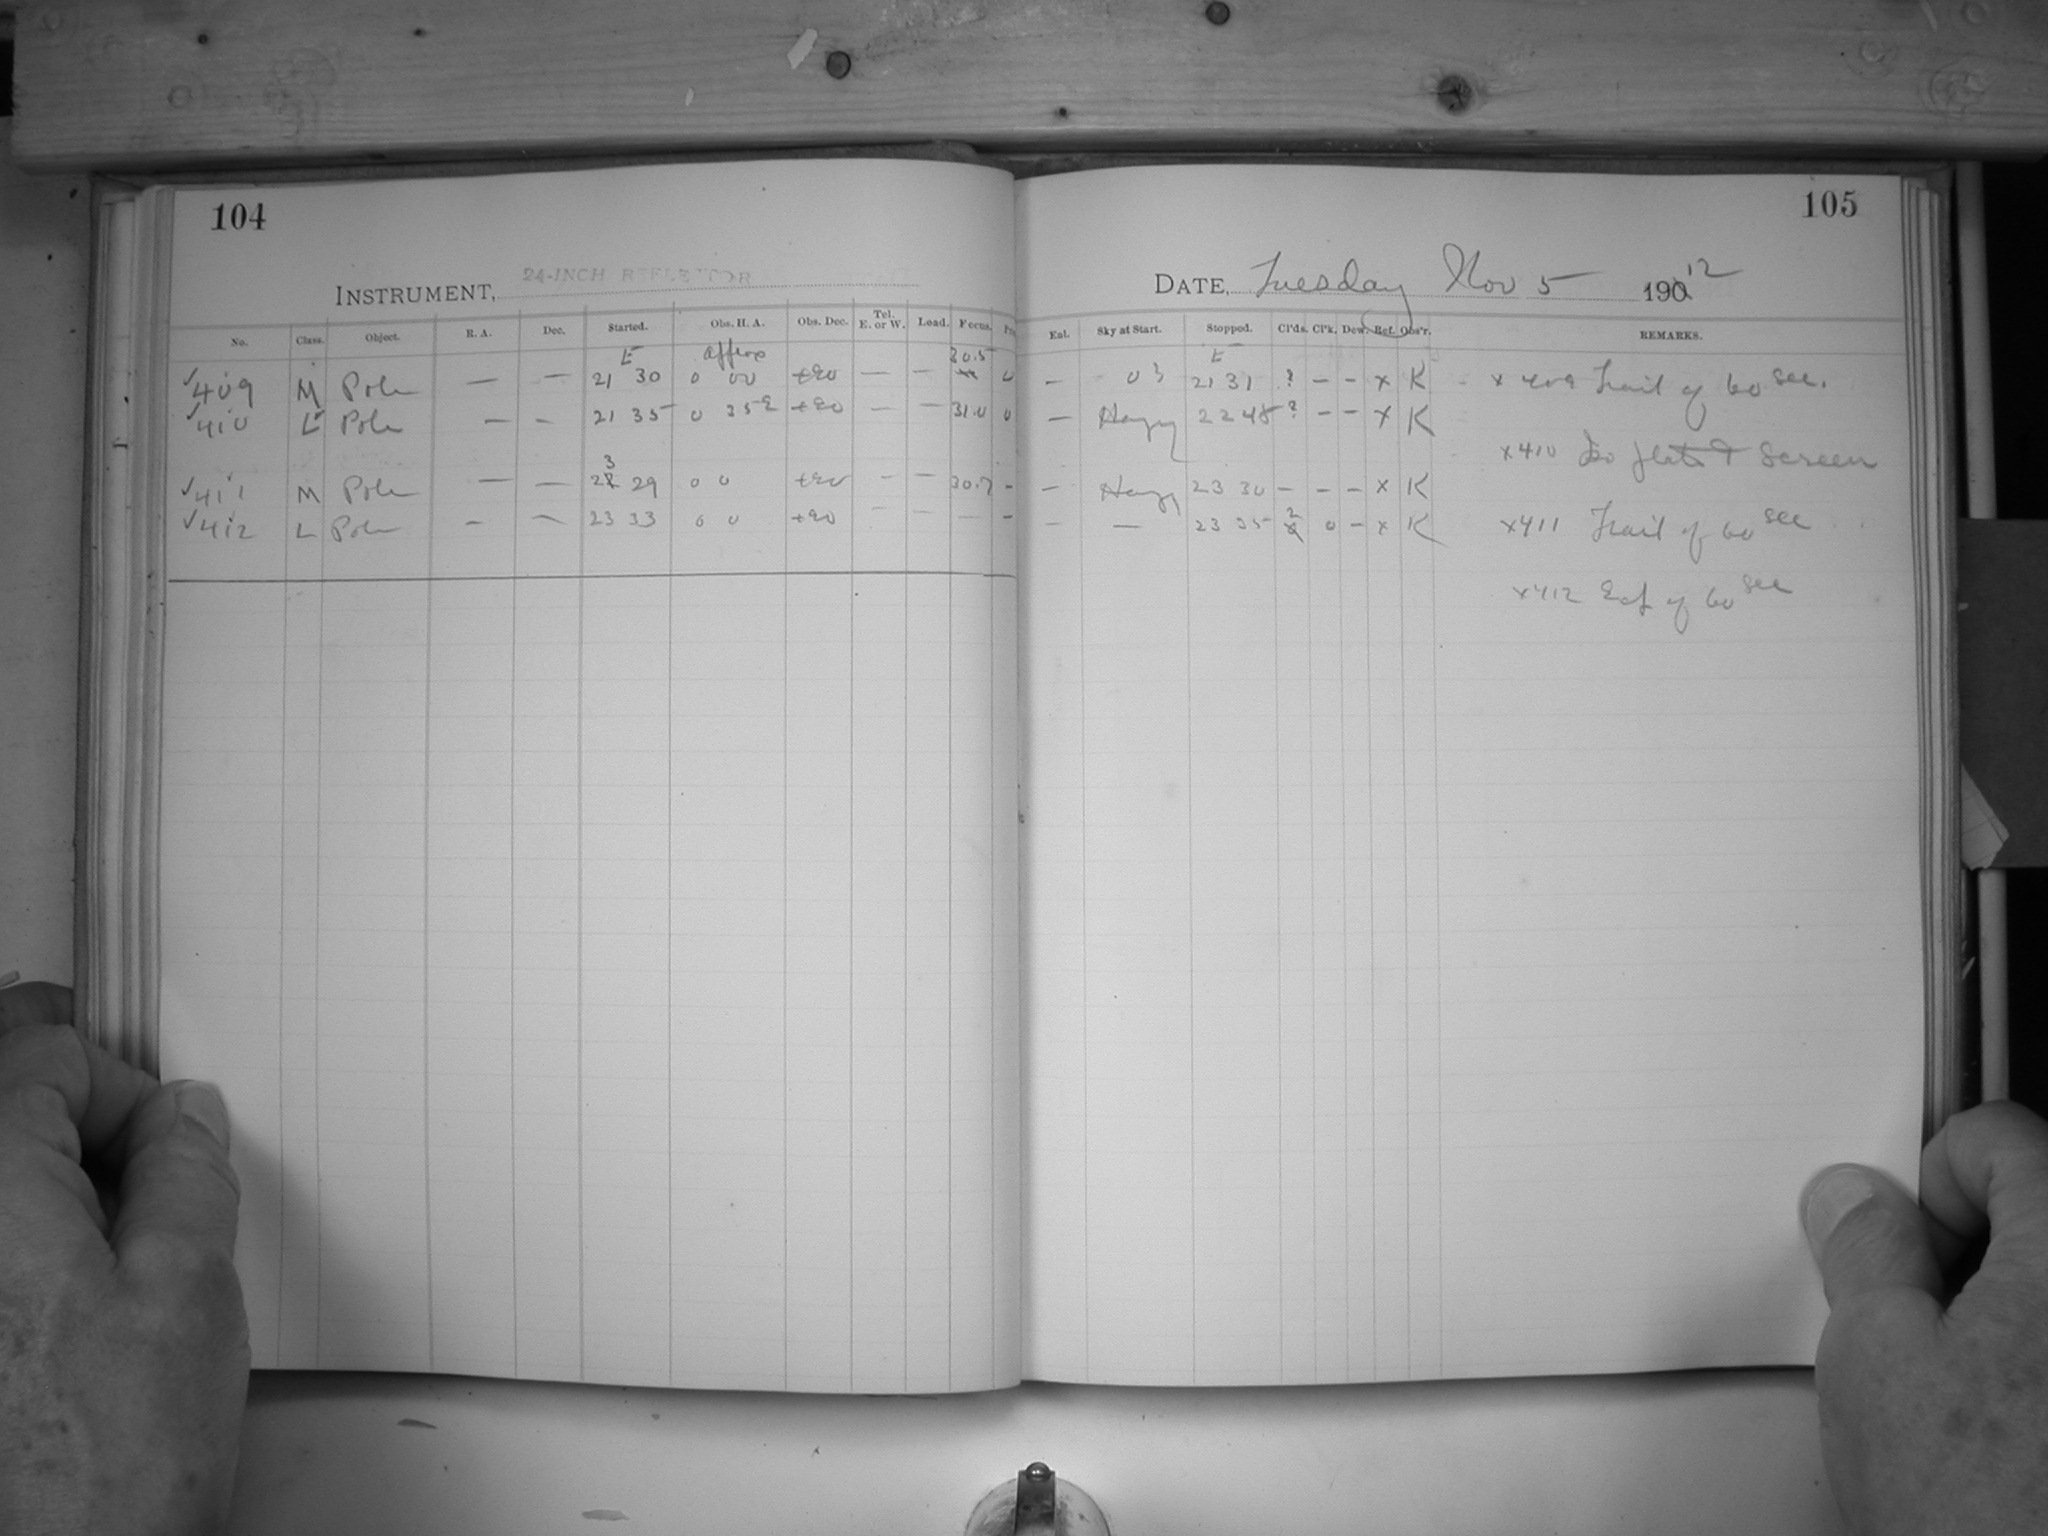 104
105
INSTRUMENT, 24-INCH REFLECTOR
DATE, Tuesday Nov 5 190 12
No. Class. Object. R. A. Dec. Started. Obs. H. A. Obs. Dec. Tel. E. or W. Load. Focus.
Ent. Sky at Start. Stopped. Cl'ds. Cl'k. Dew. Ref. Obs'r. REMARKS.
E approx 30.5
E
√409 M Pole — — 21 30 0 00 +90 — — 0
— 03 21 31 ? — — x K x 409 Trail of 60 sec.
√410 E Pole — — 21 35 0 +90 — — 31.0 0
— Hazy 22 45 ? — — x K
x410 Screen
3
√411 M Pole — — 22 29 0 0 +90 — — 30.7 -
— Hazy 23 30 — — — x K
√412 L Pole — — 23 33 0 0 +90 — — — -
— — 23 35 2 0 — x K x411 Trail of 60 sec
x412 of 60 sec